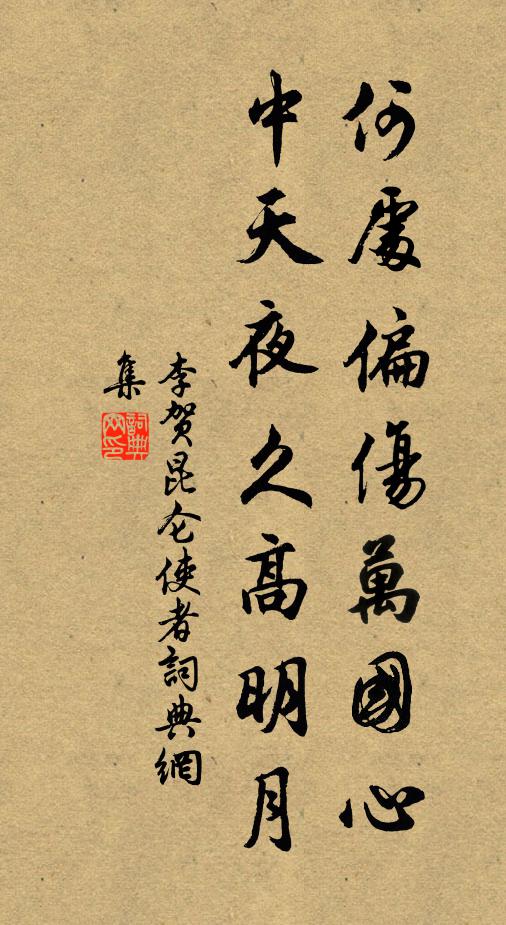 何處偏傷萬國心
中天夜久高明月
李賀昆仑使者詞典網
集
詞典
网印